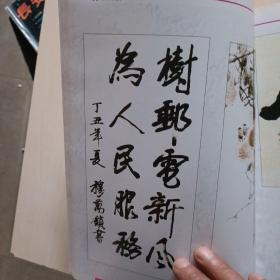 樹郵電新風
為人民服務
丁丑年夏
穆萬鎮書